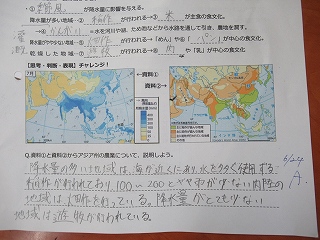 ① 季節風 が降水量に影響を与える。
降水量が多い地域→② 稲作 が行われる→③ 米 が主食の食文化。
→④ かんがい =水を河川や湖、ため池などから水路を通して引き、農地を潤す。
降水量がやや少ない地域→⑤ 畑作 が行われる→「めん」や⑥「パン」が中心の食文化。
乾燥した地域→⑦ 遊牧 が行われる→⑧ 肉 や「乳」が中心の食文化。
【思考・判断・表現】チャレンジ!
←資料①
資料②→
7月
Q.資料①と資料②からアジア州の農業について、説明しよう。
降水量の多い地域は、海が近くにあり、水を多く使用する
稲作が行われており、100〜200とやや雨が少ない内陸の
地域は、畑作を行っている。降水量がとても少ない
地域は遊牧が行われている。
6/24
A